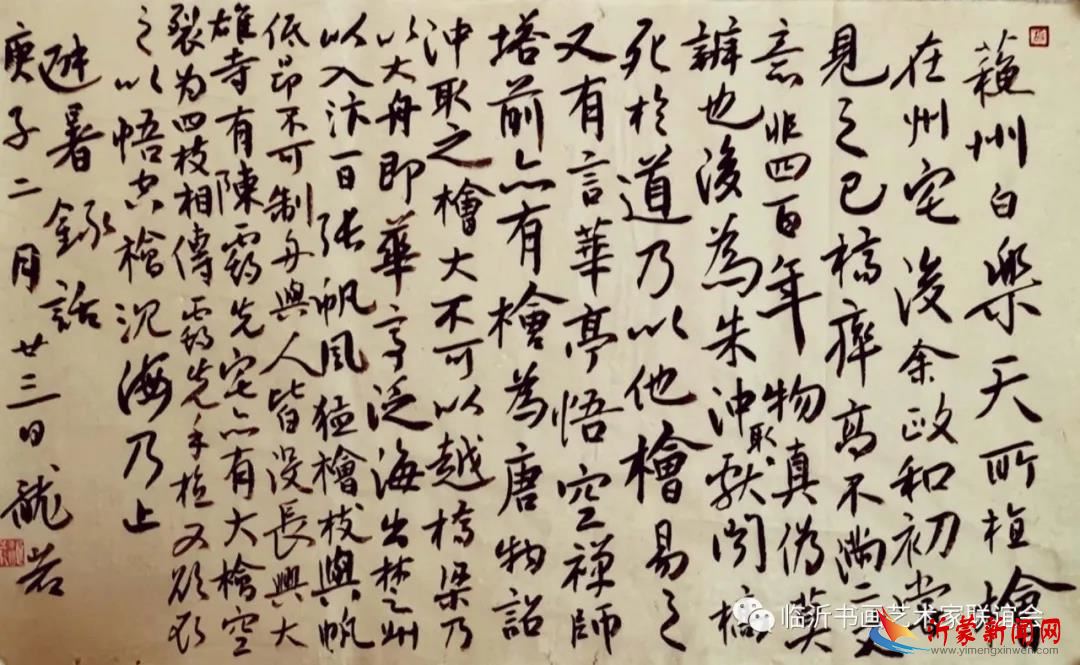 蘓州白樂天所植檜
在州宅後余政和初嘗
見之已槁瘁高不满二丈
意非四百年物真偽莫
辨也後為朱沖取獻聞槁
死於道乃以他檜易之
又有言華亭悟空禅師
塔前亦有檜為唐物詔
沖取之檜大不可以越橋梁乃
以大舟即華亭泛海出楚州
以入汴一日張帆風猛檜枝與帆
低昂不可制舟與人皆没長興大
雄寺有陳霸先宅亦有大檜空
裂为四枝相傳霸先手植又欲取
之以悟空檜沉海乃止
避暑錄話
庚子二月廿三日龍
临沂书画艺术家联谊会
沂蒙新闻网
www.yimengxinwen.com